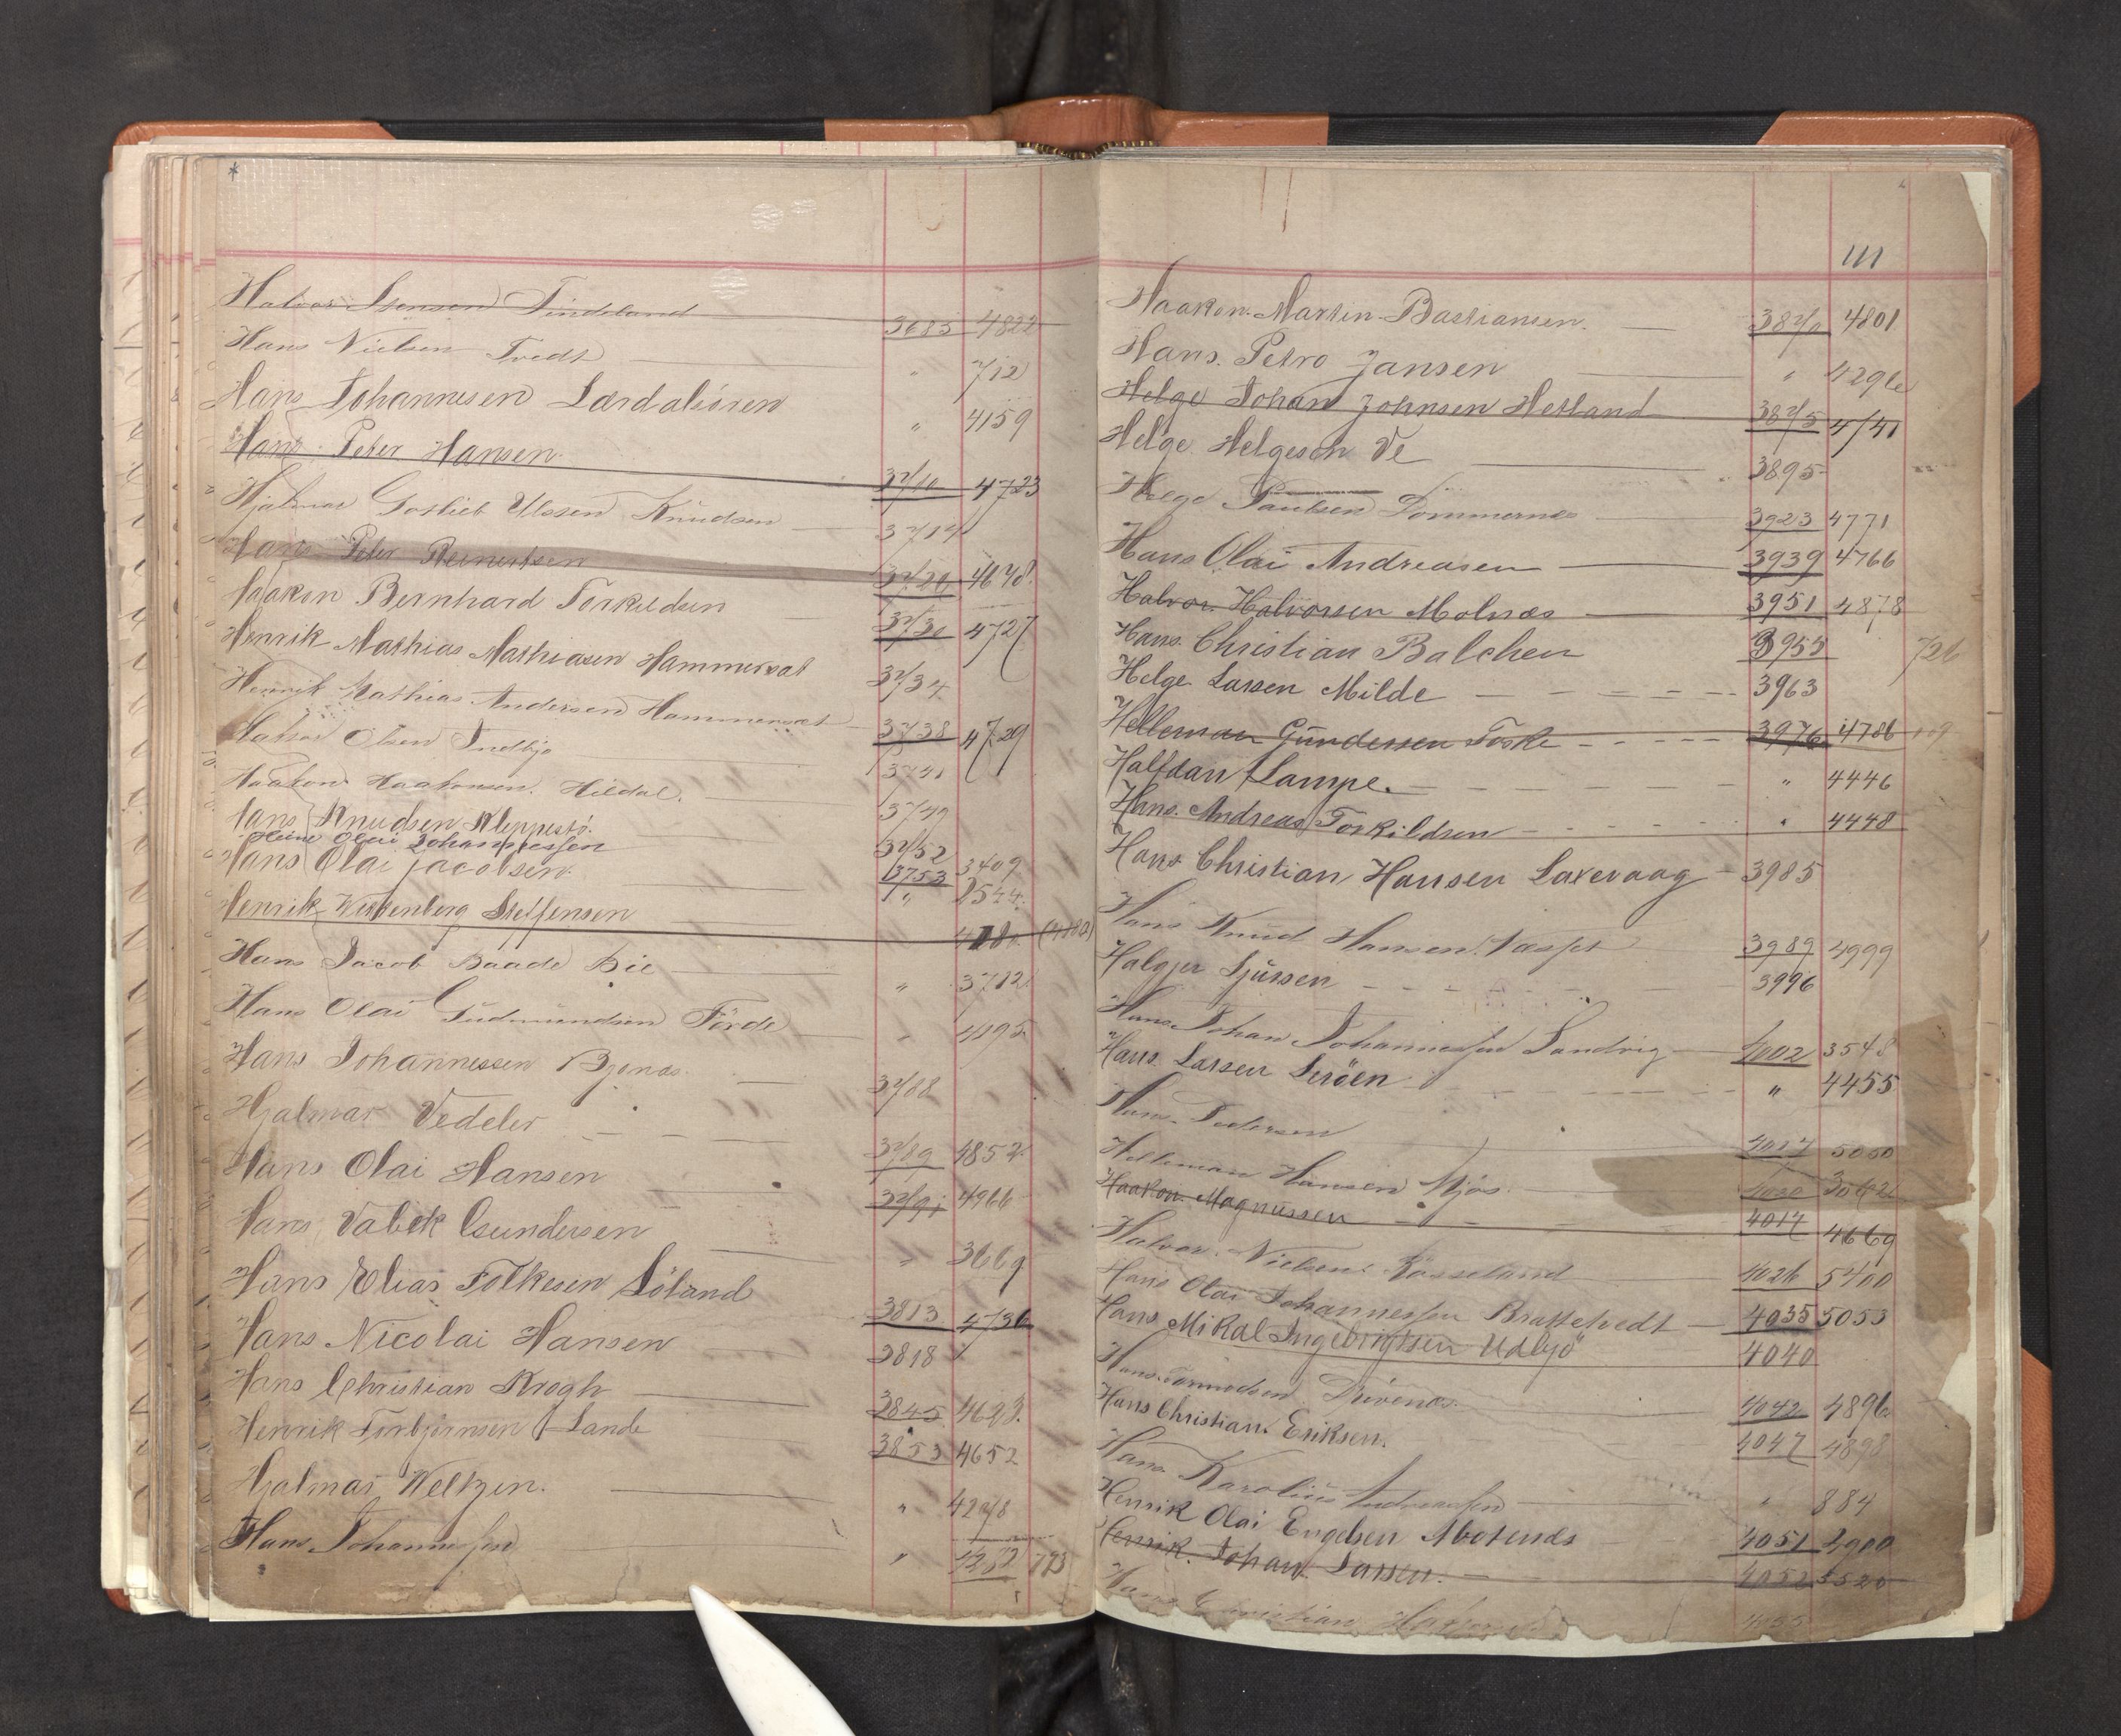 Halvor Stensen Tindeland 3685 4822
Hans Nielsen Tvedt " 712
Hans Johannesen Lærdalsören " 4159
Hans Peter Hansen 3710 4723
Hjalmar Gotlieb Olssen Knudsen 3714
Hans Peter Reinertsen 3720 4678
Haakon Bernhard Torkildsen 3730 4727
Henrik Mathias Mathiasen Hammersat 3734
Henrik Mathias Andersen Hammersæt 3738 4729
Halvor Olsen Indbjo 3741
Haakon Haakonsen Hildal. 3749
Hans Knudsen Kleppestö. 3752
Heine Olai Johannessen 3753 3409
Hans Olai Jacobsen " 2544
Henrik Wittenberg Steffensen "
Hans Jacob Baade Bie " 3712
Hans Olai Gudmundsen Förde " 4195
Hans Johannessen Bjonæs 3708
Hjalmar Vedeler 3789 4852
Hans Olai Hansen 3791 4966
Hans Valiek Gundersen " 3669
Hans Elias Folkesen Söland 3813 4736
Hans Nicolai Hansen 3818
Hans Christian Krogh 3845 4693
Henrik Torbjörnsen Lande 3853 4652
Hjalmar Weltzin. " 4278
Hans Johannessen "
111
Haakon Martin Bastiansen. 3870 4801
Hans Petro Jansen " 4296
Helge Johan Johnsen Hetland 3875 4741
Helge Helgesen Ve 3895
Helge Paulsen Dommersnes 3923 4771
Hans Olai Andreasen 3939 4766
Halvor Halvorsen Molnæs 3951 4878
Hans Christian Balchen 3955 726
Helge Larsen Milde 3963
Helleman Gundersen Toske 3976 4786 109
Halfdan Lampe. " 4446
Hans Andreas Torkildsen " 4448
Hans Christian Hansen Laxevaag 3985
Hans Knud Hansen 3989 4999
Halgjer Sjursen 3996
Hans Johan Johannessen Sandvig 4002 3548
Hans Larsen Leröen " 4455
Hans Pedersen 4017 5050
Helleman Hansen Mjös
Haakon Magnussen 4017 4669
Halvor Nielsen Rosseland 4026 5400
Hans Olai Johannessen Brattetvedt 4035 5053
Hans Mikal Ingebrigtsen Udbyö 4040
Hans Tormodsen Drivenæs. 4042 4896
Hans Christian Eriksen. 4047 4898
Hans Karolius Andreassen " 884
Henrik Olai Engelsen 4051 4900
Henrik Johan Larsen. 4052 3520
Hans Christian 4055